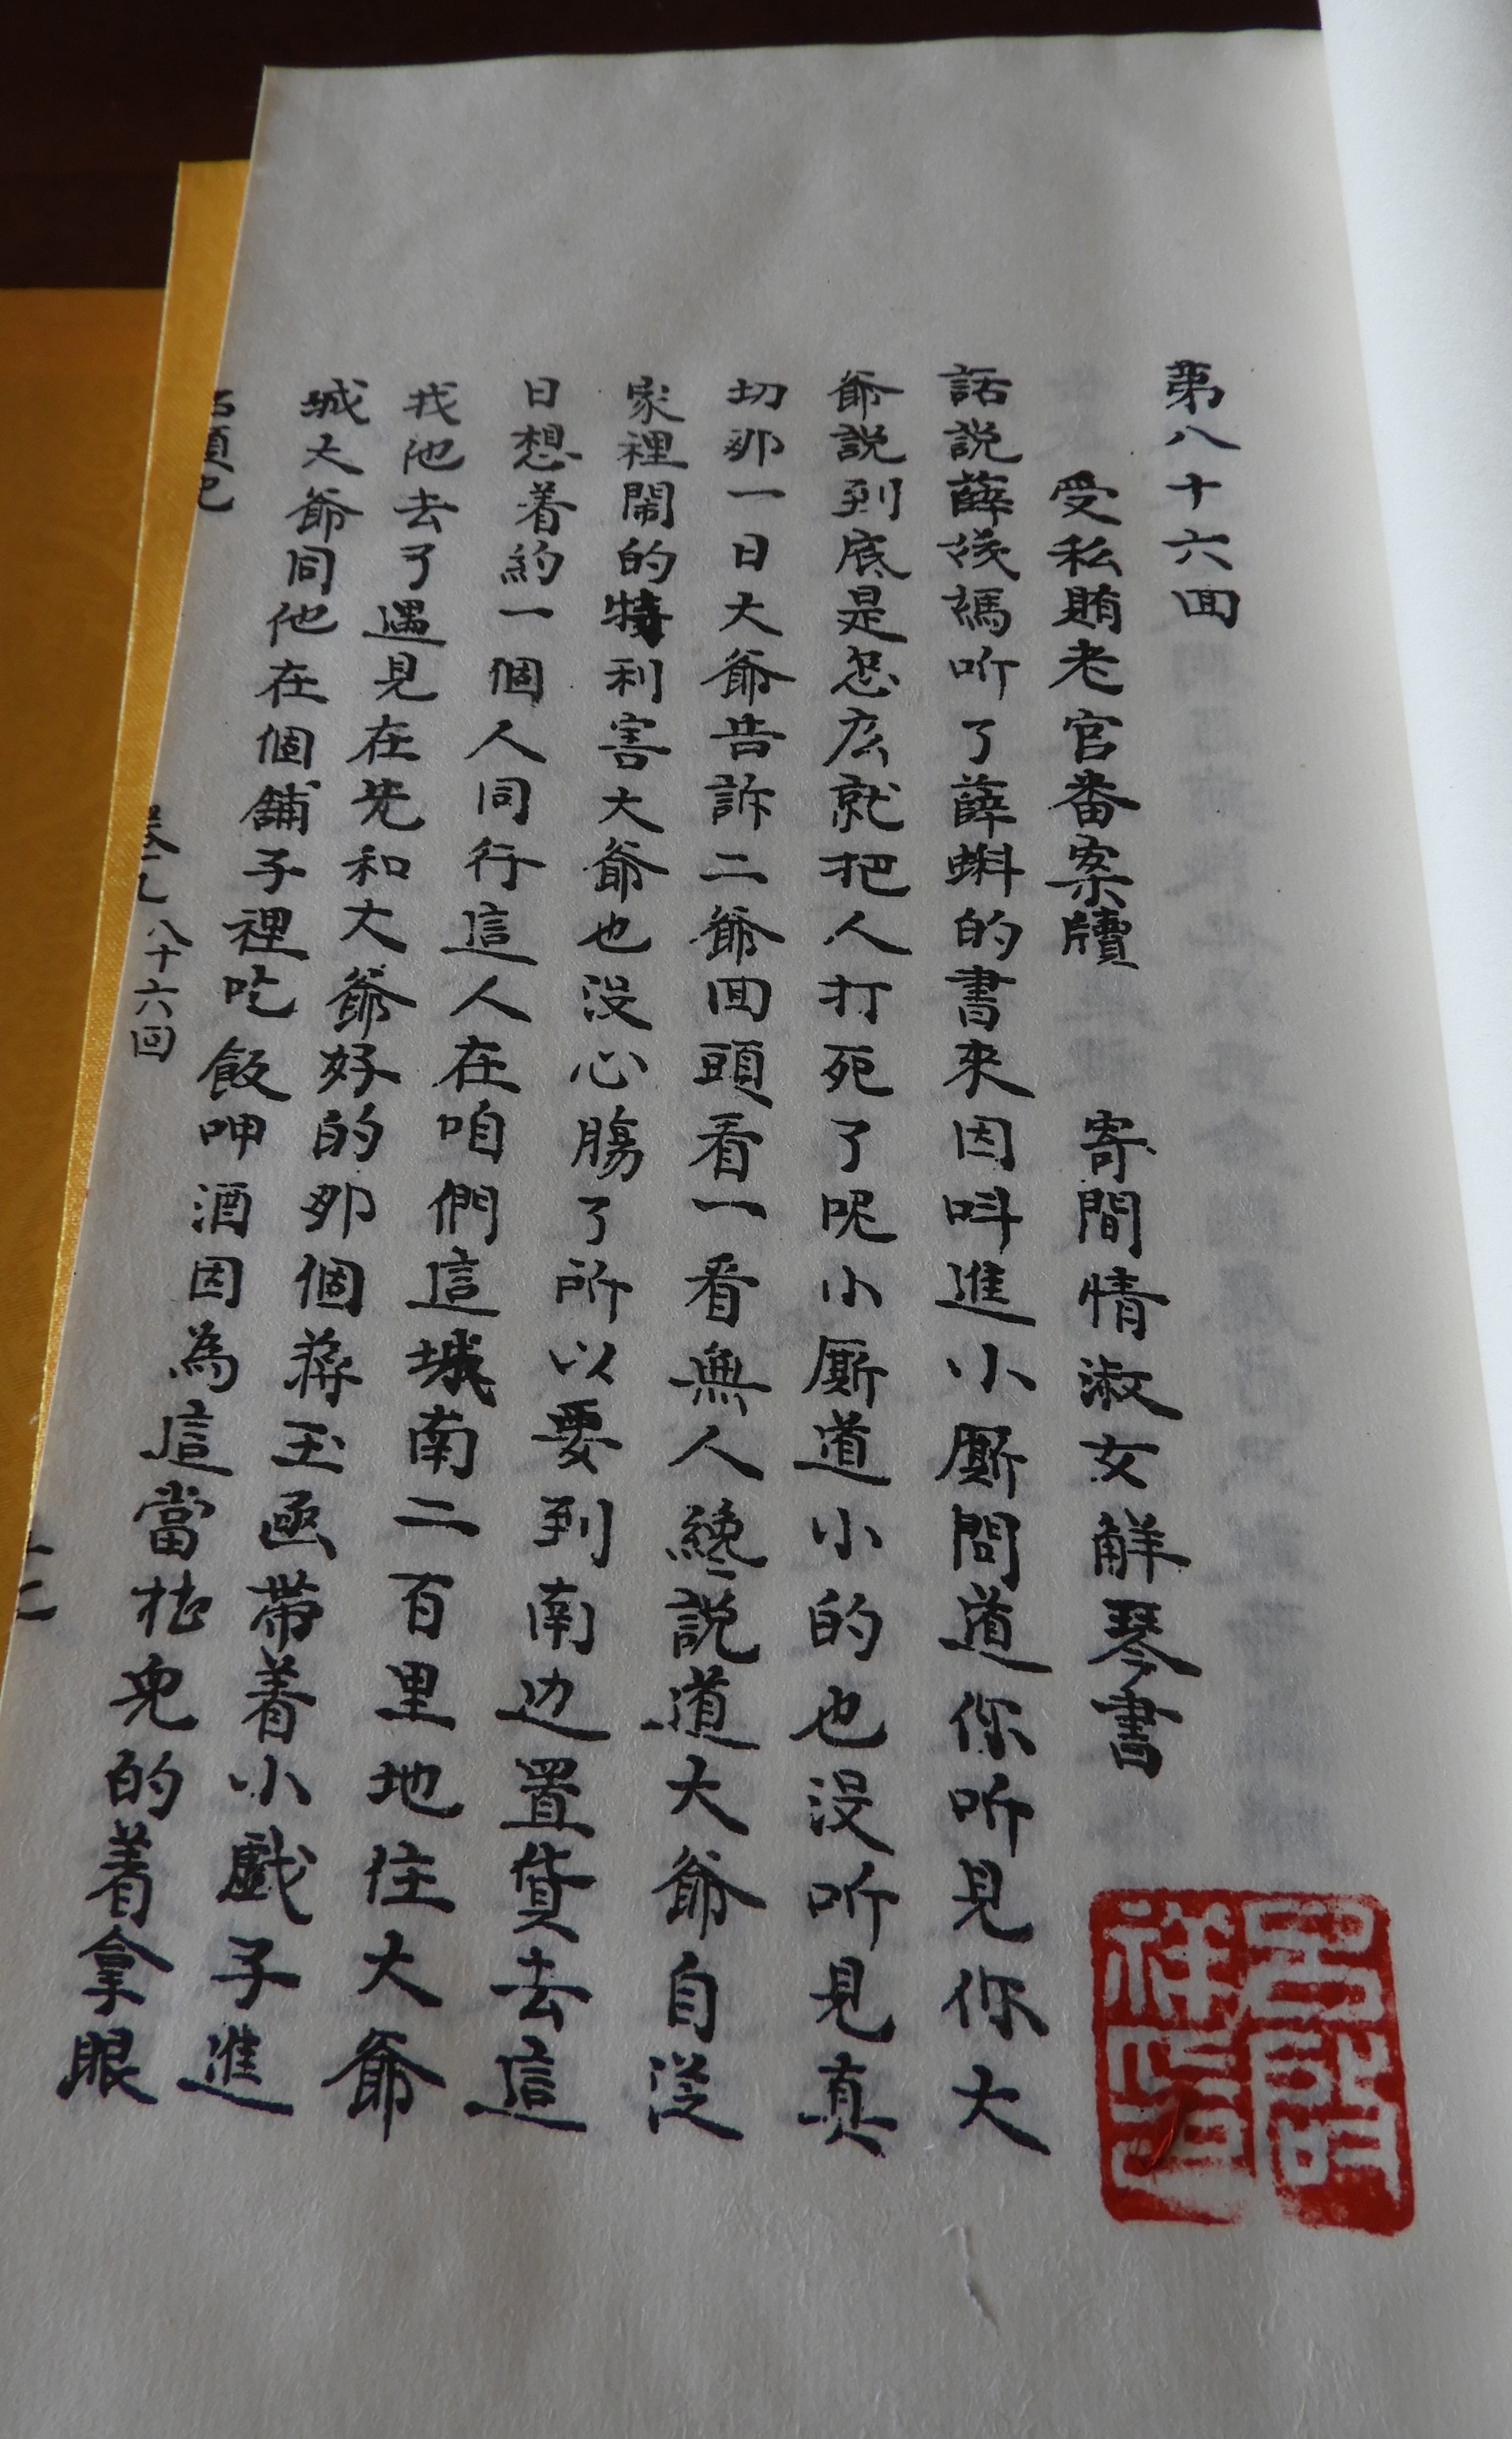 第八十六回
受私賄老官番案牘　寄閒情淑女觧琴書
話説薛姨媽听了薛蝌的書來因呌進小厮問道你听見你大
爺説到底是怎広就把人打死了呢小厮道小的也没听見真
切那一日大爺告訴二爺回頭看一看無人纔説道大爺自从
家裡鬧的特利害大爺也没心腸了所以要到南边置貨去這
日想着約一個人同行這人在咱們這城南二百里地住大爺
找他去了遇見在先和大爺好的那個蔣玉函帶着小戲子進
城大爺同他在個舖子裡吃飯呷酒因為這當槽兒的着拿眼
八十六回